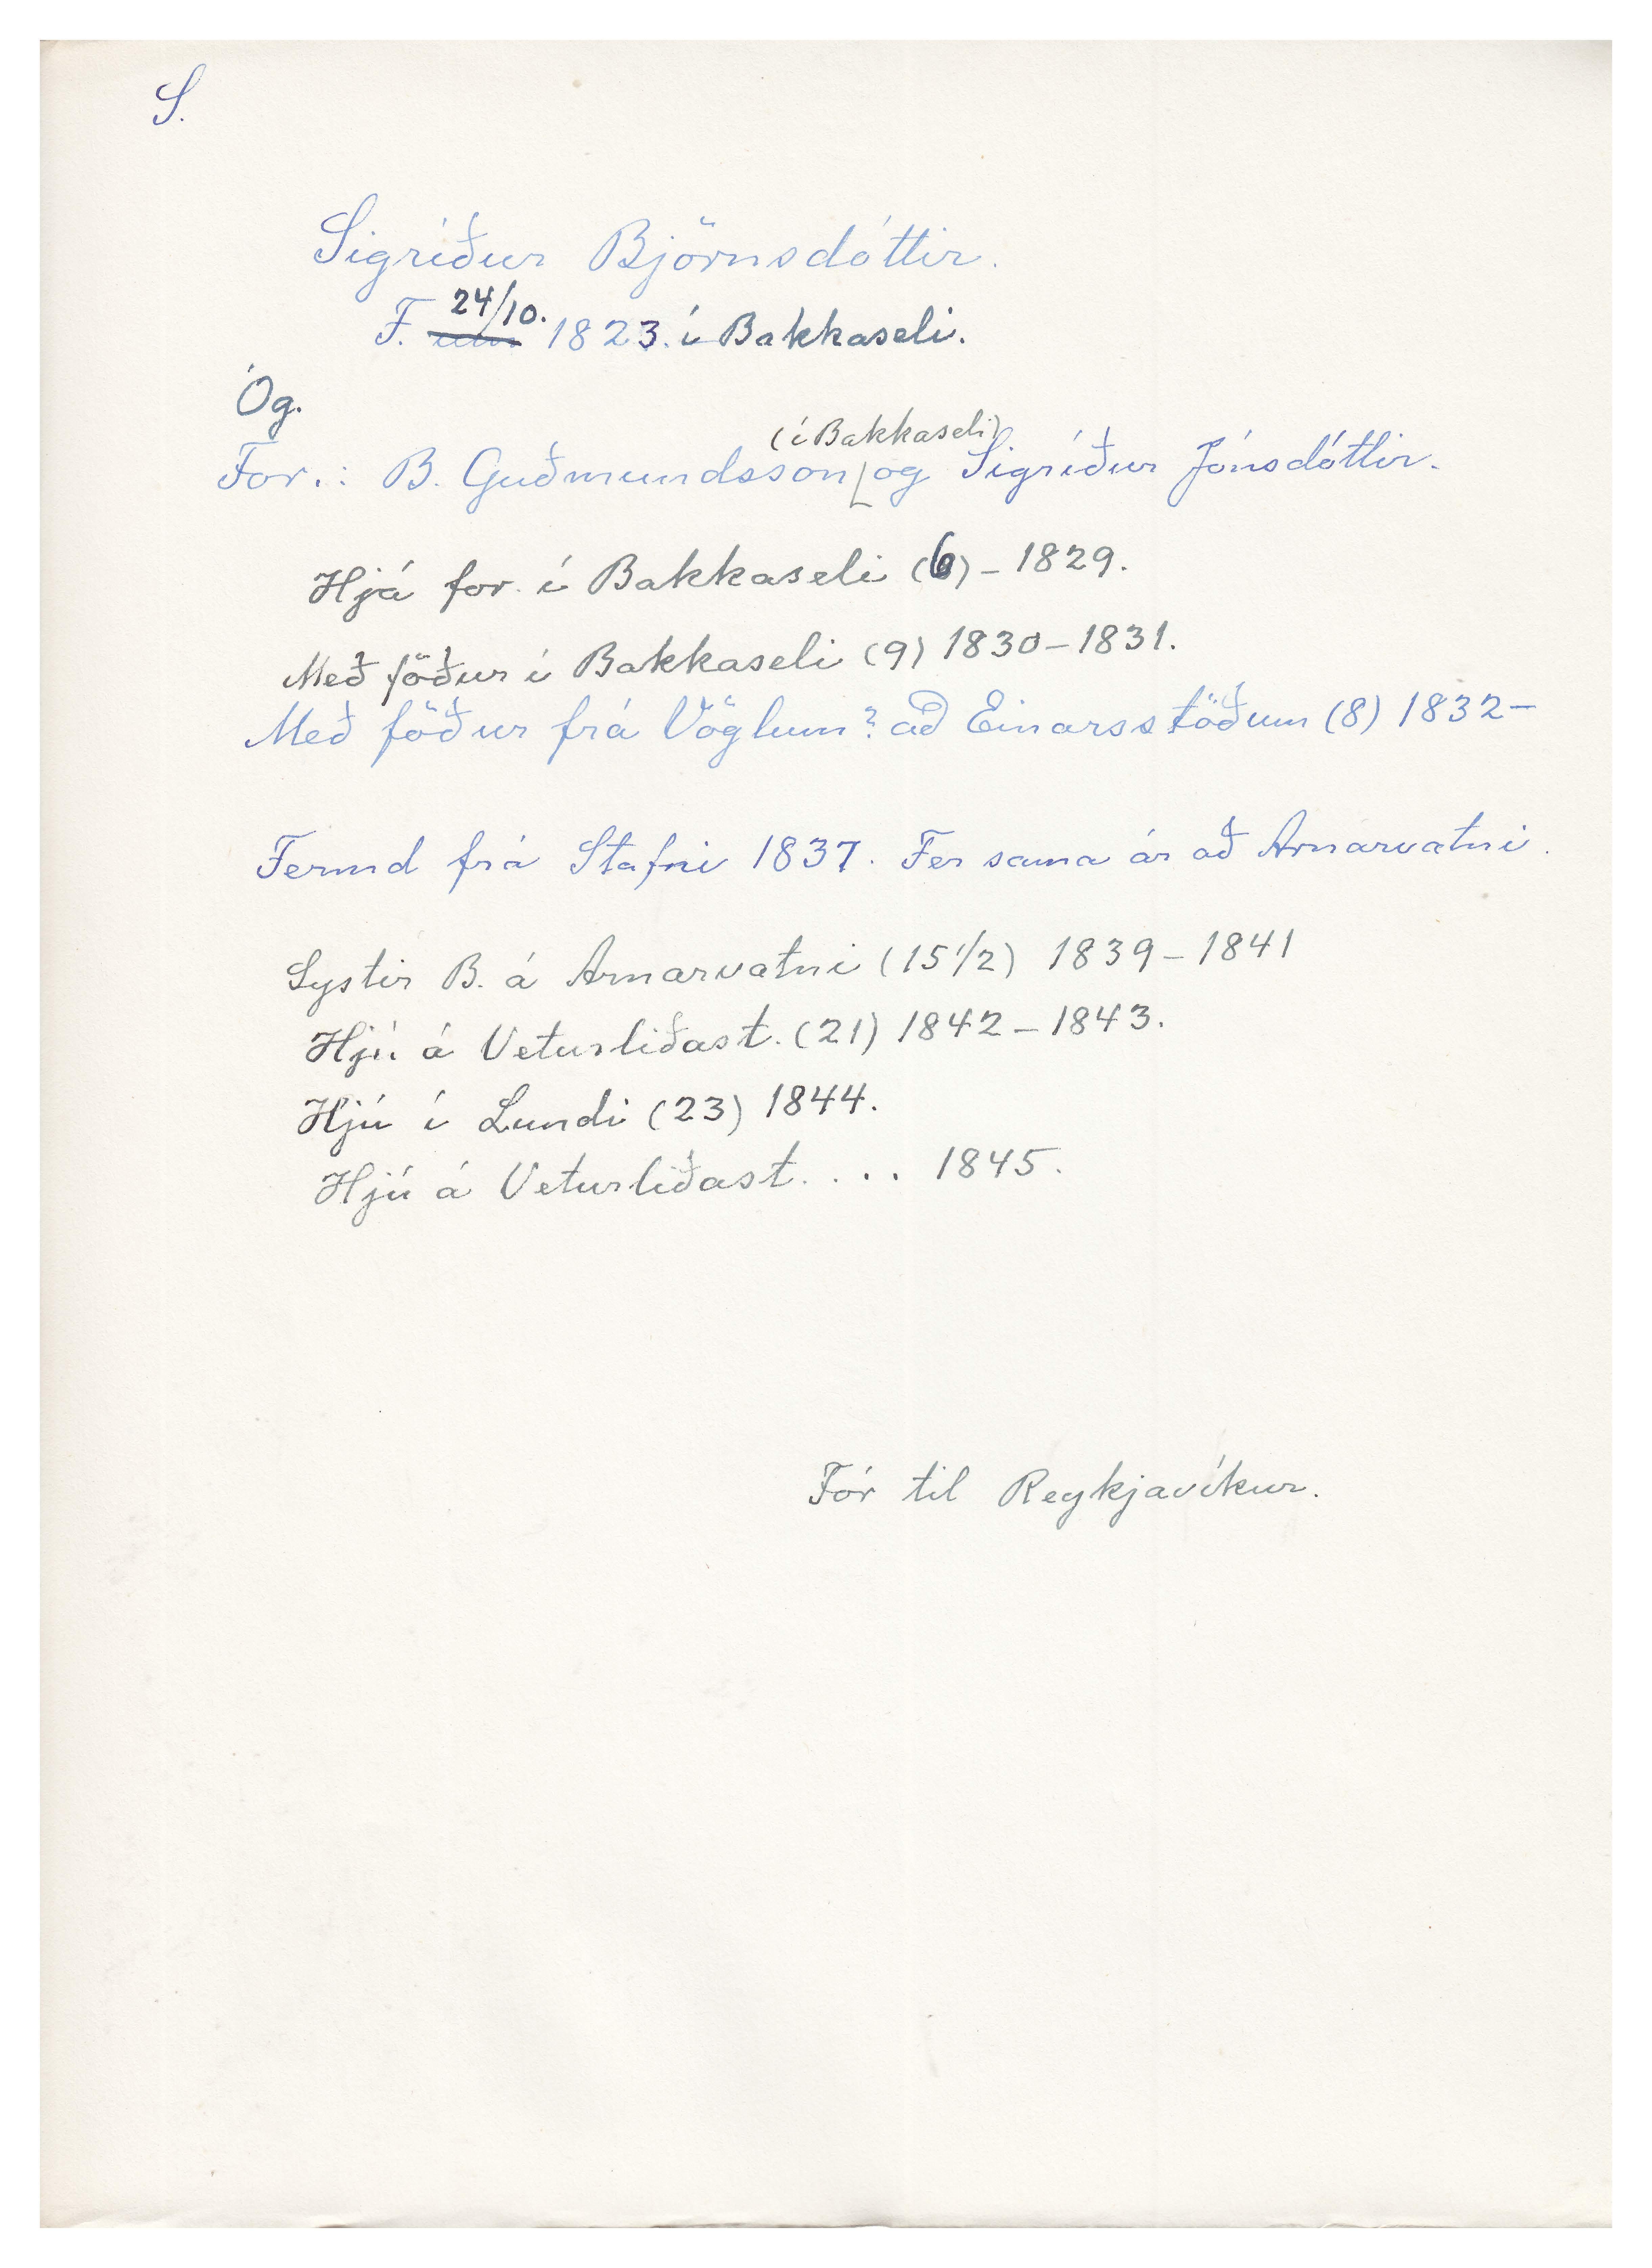 S.
Sigríður Björnsdóttir.
F. um 24/10. 1823. í Bakkaseli.
Óg.
For.: B. Guðmundsson (í Bakkaseli) og Sigríður Jónsdóttir.
Hjá for. í Bakkaseli (6) - 1829.
Með föður í Bakkaseli (9) 1830-1831.
Með föður frá Vöglum? að Einarsstöðum (8) 1832-
Fermd frá Stafni 1837. Fer sama ár að Arnarvatni.
Systir B. á Arnarvatni (15 1/2) 1839-1841
Hjú á Veturliðast. (21) 1842-1843.
Hjú í Lundi (23) 1844.
Hjú á Veturliðast. . . . 1845.
Fór til Reykjavíkur.